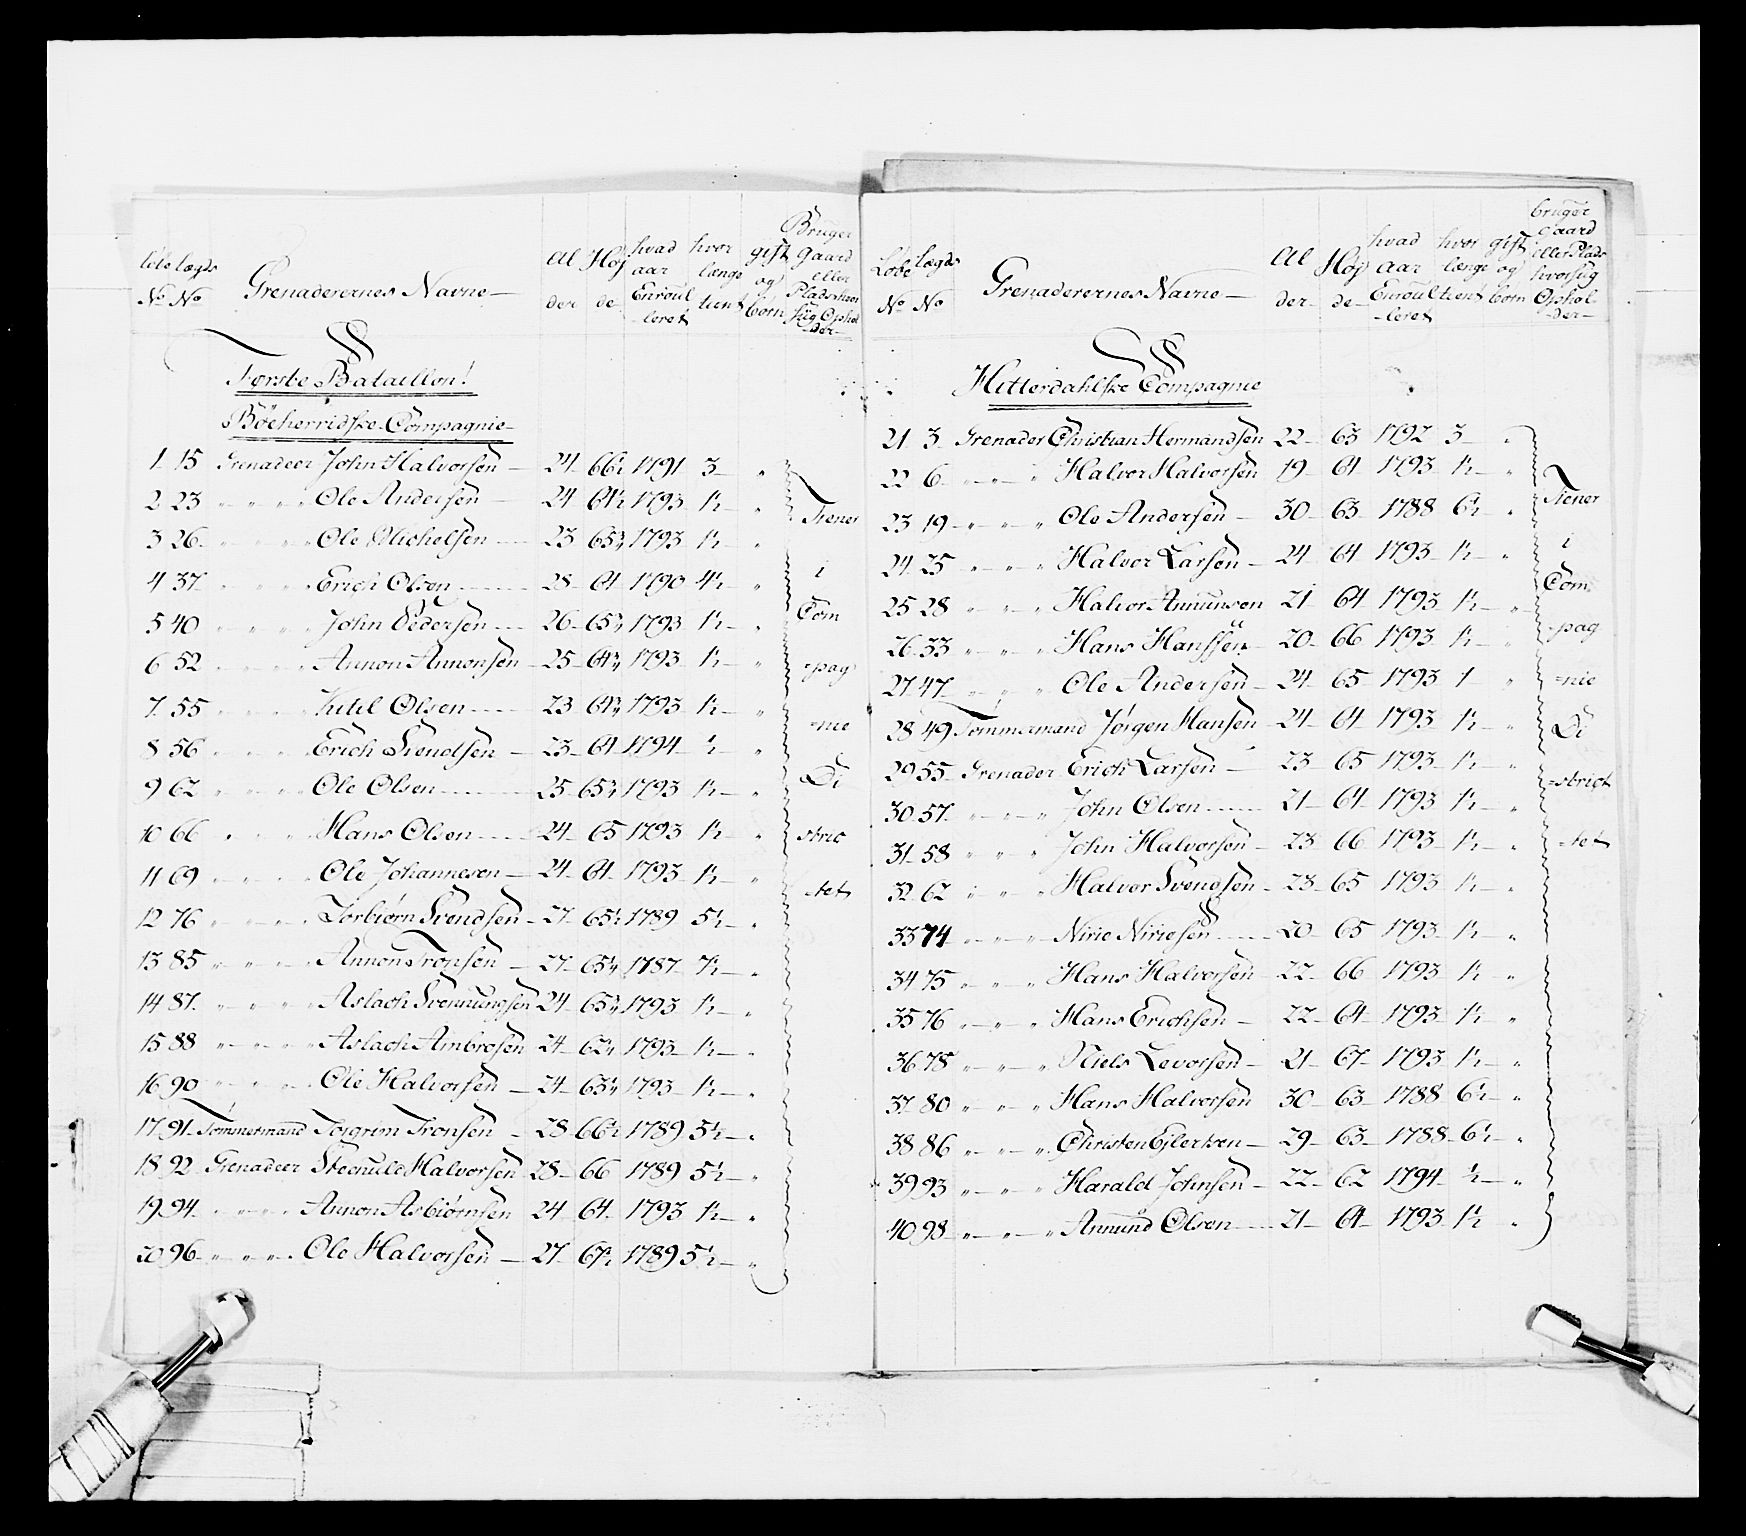 Løbe No
Lægds No
Grenaderernes Navne
Al der
Høj de
hvad aar Enroulleret
hvor længe tient
gift og børn
Bruger Gaard eller Plads hvor sig Ophol der
Første Bataillon!
Böeherridske Compagnie
1 15 Grenadeer John Halvorsen 24 66½ 1791 3 "
2 23 " " " Ole Andersen 24 64½ 1793 1½ "
3 26 " " " Ole Michelsen 23 65¾ 1793 1½ "
4 37 " " " Erich Olsen 28 64 1790 4½ "
5 40 " " " John Pedersen 26 65¾ 1793 1½ "
6 52 " " " Annon Annonsen 25 64¾ 1793 1½ "
7 55 " " " Kitel Olsen 23 64¾ 1793 1½ "
8 56 " " " Erich Svendsen 23 64 1794 ½ "
9 62 " " " Ole Olsen 25 65¾ 1793 1½ "
10 66 " " " Hans Olsen 24 65 1793 1½ "
11 69 " " " Ole Johannesen 24 64 1793 1½ "
12 76 " " " Torbiørn Svendsen 27 65½ 1789 5½ "
13 85 " " " Annon Tronsen 27 65¼ 1787 7½ "
14 87 " " " Aslach Svennungsen 24 65¾ 1793 1½ "
15 88 " " " Aslach Ambrosen 24 62¼ 1793 1½ "
16 90 " " " Ole Halvorsen 24 63¼ 1793 1½ "
17 91 Tömmermand Torgrim Tronsen 28 66½ 1789 5½ "
18 92 Grenadeer Steenuld Halvorsen 28 66 1789 5½ "
19 94 " " " Annon Asbiørnsen 24 64 1793 1½ "
20 96 " " " Ole Halvorsen 27 67½ 1789 5½ "
Tiener
i
Com
=pag
=nie
Di
stric
=tet
Løbe No
Lægds No
Grenaderernes Navne
Al der
Høj de
hvad aar Enroulleret
hvor længe tient
gift og børn
bruger Gaard eller Plads hvor sig Ophol der
Hitterdahlske Compagnie
21 3 Grenader Christian Hermandsen 22 63 1792 3 "
22 6 " " " Halvor Halvorsen 19 64 1793 1½ "
23 19 " " " Ole Andersen 30 63 1788 6½ "
24 25 " " " Halvor Larsen 24 64 1793 1½ "
25 28 " " " Halvor Amunsen 21 64 1793 1½ "
26 33 " " " Hans Hanssen 20 66 1793 1½ "
27 47 " " " Ole Andersen 24 65 1793 1 "
28 49 Tömmermand Jörgen Hansen 24 64 1793 1½ "
29 55 Grenader Erich Larsen 23 65 1793 1½ "
30 57 " " " John Olsen 21 64 1793 1½ "
31 58 " " " John Halvorsen 23 66 1793 1½ "
32 62 " " " Halvor Svendsen 23 65 1793 1½ "
33 74 " " " Nirie Niriesen 20 65 1793 1½ "
34 75 " " " Hans Halvorsen 22 66 1793 1½ "
35 76 " " " Hans Erichsen 22 64 1793 1½ "
36 78 " " " Niels Levorsen 21 67 1793 1½ "
37 80 " " " Hans Halvorsen 30 63 1788 6½ "
38 86 " " " Christen Ejlertsen 29 63 1788 6½ "
39 93 " " " Harald Johnsen 22 62 1794 ½ "
40 98 " " " Amund Olsen 21 64 1793 1½ "
Tiener
i
Com
=pag
=nie
Di
=strict
=tet